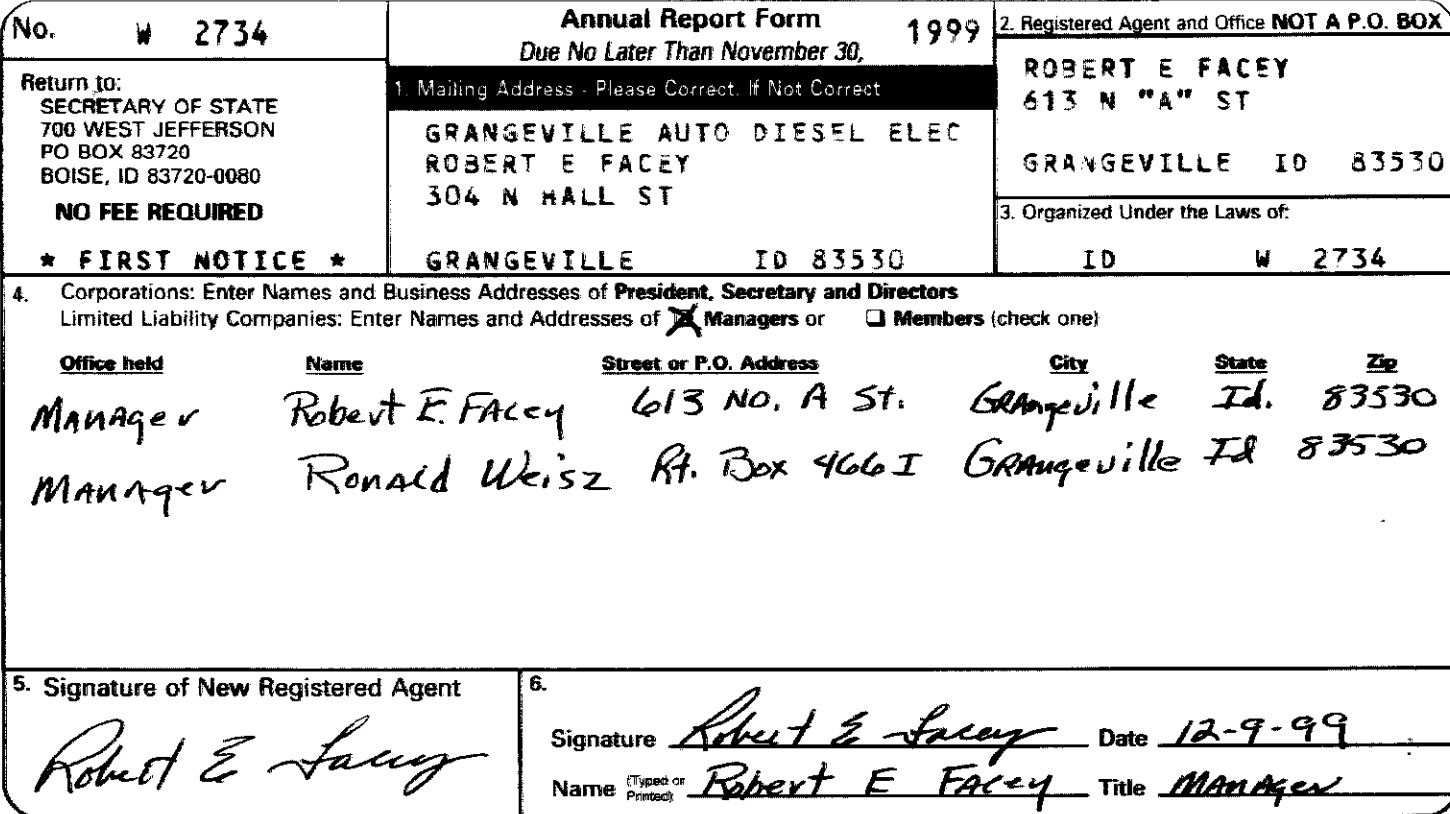 No. W 2734
Return to:
SECRETARY OF STATE
700 WEST JEFFERSON
PO BOX 83720
BOISE, ID 83720-0080
NO FEE REQUIRED
* FIRST NOTICE *
Annual Report Form 1999
Due No Later Than November 30,
1. Mailing Address - Please Correct. If Not Correct
GRANGEVILLE AUTO DIESEL ELEC
ROBERT E FACEY
304 N HALL ST
GRANGEVILLE ID 83530
2. Registered Agent and Office NOT A P.O. BOX
ROBERT E FACEY
613 N "A" ST
GRANGEVILLE ID 83530
3. Organized Under the Laws of:
ID W 2734
4. Corporations: Enter Names and Business Addresses of President, Secretary and Directors
Limited Liability Companies: Enter Names and Addresses of Managers or Members (check one)
Office held Name Street or P.O. Address City State Zip
Manager Robert E. Facey 613 No. A St. Grangeville Id. 83530
Manager Ronald Weisz Rt. Box 466 I Grangeville Id 83530
5. Signature of New Registered Agent
Robert E Facey
6.
Signature Robert E Facey Date 12-9-99
Name (Typed or Printed) Robert E Facey Title Manager